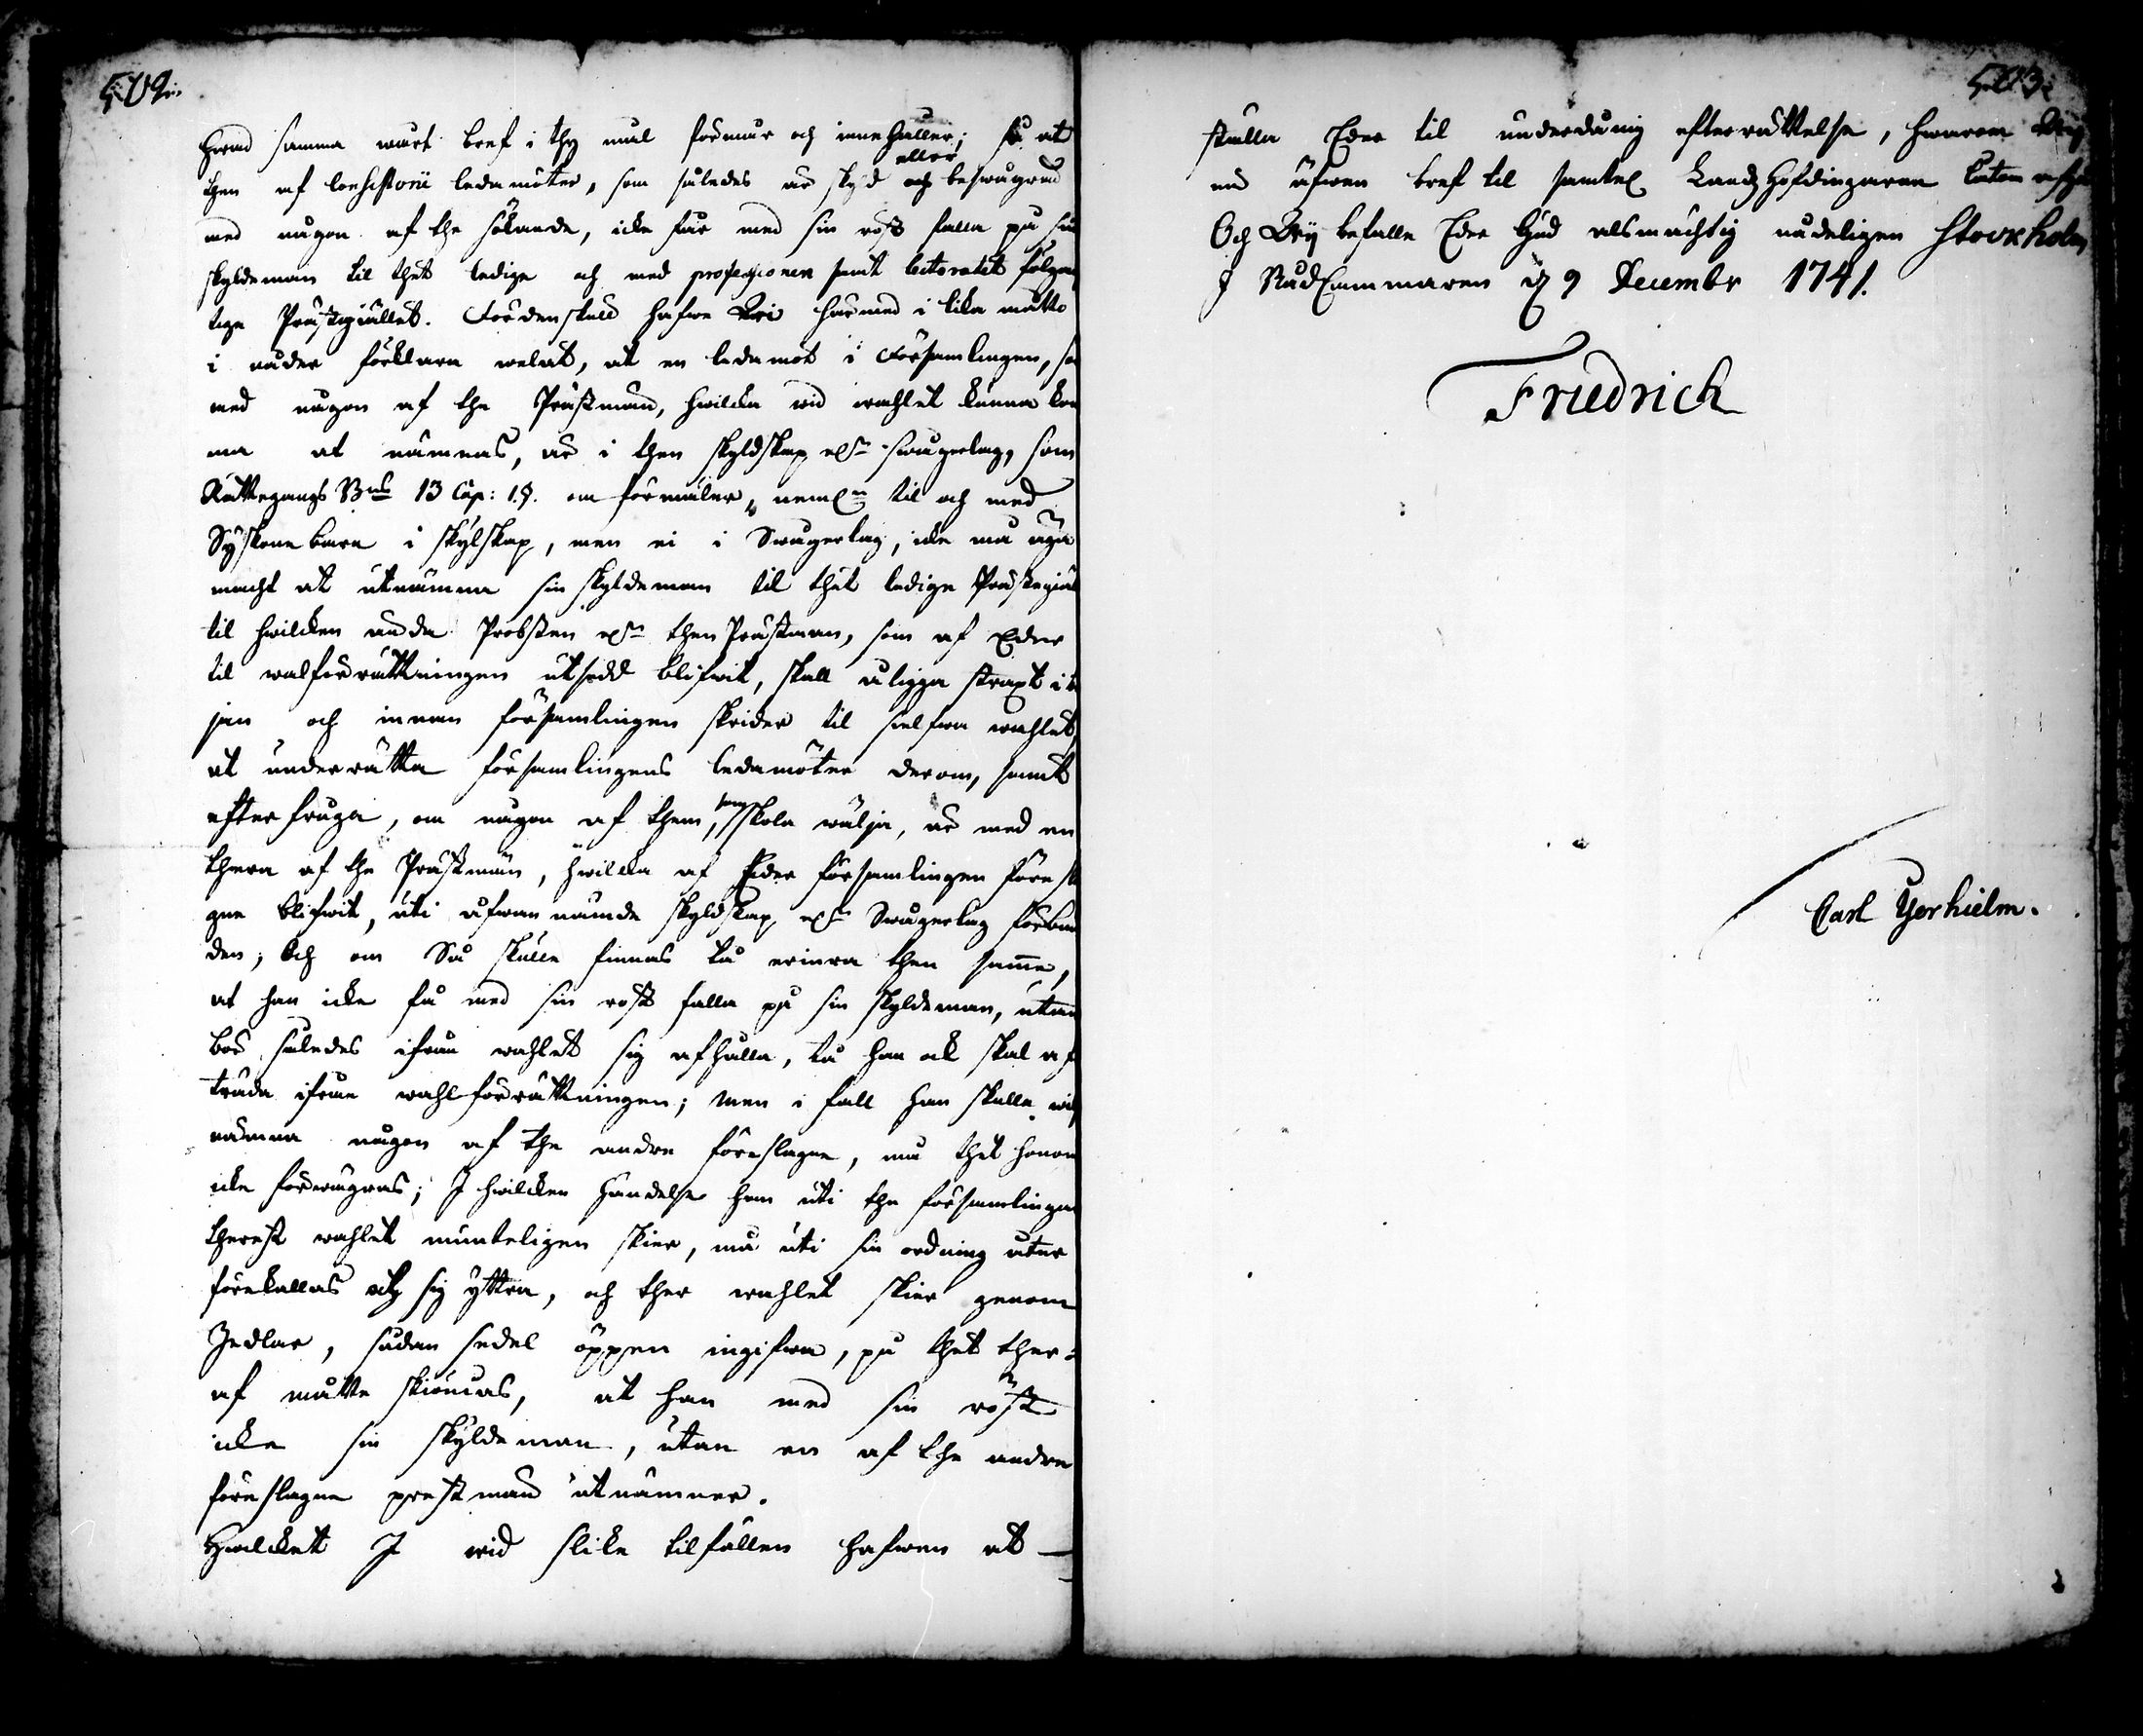 502.
hwad samma wårt bref i thy mål förmår och innehåller; så at
then af Consistorii ledamöter, som således är skyld och eller beswågrad
med någon af the sökande, icke får med sin röst falla på sin
skyldeman til thet ledige och med professionen samt lectoratet följan
tige Prästegiället. Fördenskuld hafwe Wi härmed i lika måtto
i nåder förklara welat, at en ledamot i Församlingen, so
med någon af the Prästmän, hwilcka wid wahlet kunna kom
ma at nämnas, är i then skyldskap eller swågerlag, som
Rättegångs B. 13 Cap: 1.§. om förmäler, neml. til och med
Syskonebarn i skylskap, men ei i Swågerlag, icke må äga
macht at utnämna sin skyldeman til thet ledige Prästegiäl
til hwilcken ända Probsten eller then Prästman, som af Eder
til walförrättningen utsedd blifwit, skall åligga straxt i bör
jan och innan församlingen skrider til sielfwa wahlet,
at underrätta församlingens ledamöter derom, samt
efterfråga, om någon af them, som skola wälja, är med en
thera af the Prästmän, hwilcka af Eder församlingen föresla
gne blifwit, uti åfwannämnde skyldskap eller Swågerlag förbun
den; Och om Så skulle finnas tå erinra then samme,
at han icke få med sin röst falla på sin skyldeman, utan
bör således ifrån wahlet sig afhålla, tå han ock skal af
träda ifrån wahlförrättningen; men i fall han skulle wilja
nämna någon af the andre föreslagne, må thet honom
icke förwägras; I hwilcken händelse han uti the församlingar
therest wahlet munteligen skier, må uti sin ordning åter
förekallas at sig yttra, och ther wahlet skier genom
Zedlar, sådan sedel öppen ingifwa, på thet ther:
af måtte skiönjas, at han med sin röst
icke sin skyldeman, utan en af the andre
föreslagne prestmän utnämner.
Hwilcket I wid slike tilfällen hafwen at —
503.
ställa Eder til underdånig efterrättelse, hwarom Wij
nu äfwen bref til samtel. Landshöfdingarne låtom afgå
Och Wij befalle Eder Gud alsmächtig nådeligen Stockholm
I RådCammaren d. 9 Decembr 1741.
Friedrich
Carl Yerhielm.